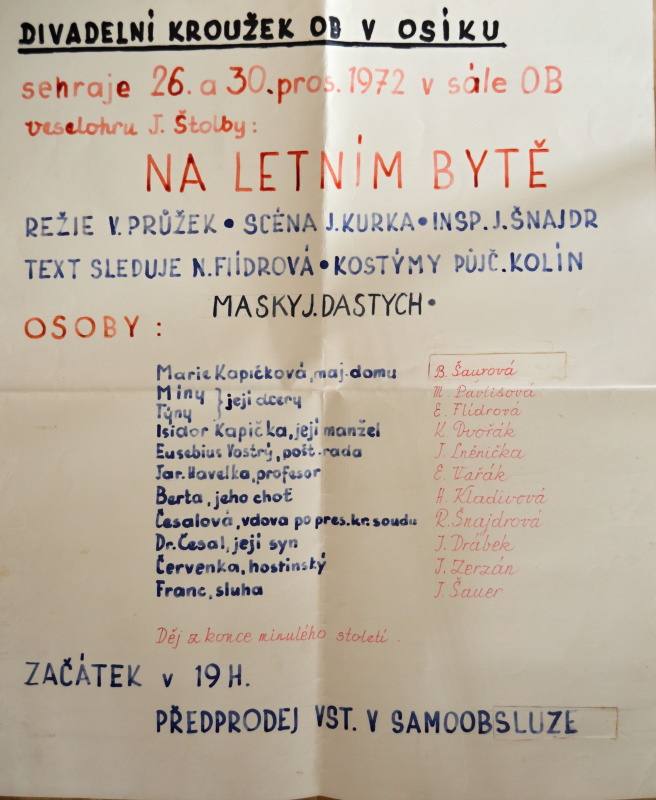 DIVADELNÍ KROUŽEK OB V OSÍKU
sehraje 26. a 30. pros. 1972 v sále OB
veselohru J. Štolby:
NA LETNÍM BYTĚ
REŽIE V. PRŮŽEK • SCÉNA J. KURKA • INSP. J. ŠNAJDR
TEXT SLEDUJE N. FLÍDROVÁ • KOSTÝMY PŮJČ. KOLÍN
MASKY J. DASTYCH •
OSOBY:
Marie Kapičková, maj. domu B. Šaurová
Miny M. Pavlišová
Týny } její dcery E. Flídrová
Isidor Kapička, její manžel K. Dvořák
Eusebius Vostrý, pošt. rada J. Lněnička
Jar. Havelka, profesor E. Vařák
Berta, jeho choť H. Kladivová
Česalová, vdova po pres. kr. soudu R. Šnajdrová
Dr. Česal, její syn J. Drábek
Červenka, hostinský J. Zerzán
Franc, sluha J. Šauer
Děj z konce minulého století.
ZAČÁTEK v 19 H.
PŘEDPRODEJ VST. V SAMOOBSLUZE